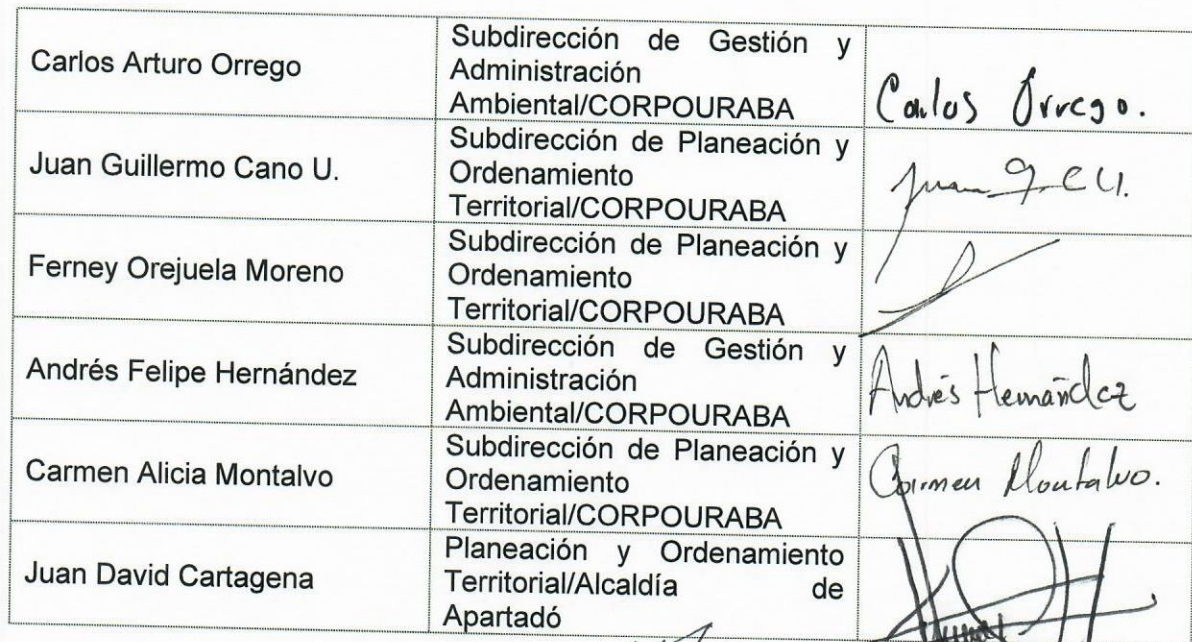 Carlos Arturo Orrego
Subdirección de Gestión y
Administración
Ambiental/CORPOURABA
Carlos Orrego.
Juan Guillermo Cano U.
Subdirección de Planeación y
Ordenamiento
Territorial/CORPOURABA
Juan G. C U.
Ferney Orejuela Moreno
Subdirección de Planeación y
Ordenamiento
Territorial/CORPOURABA
Andrés Felipe Hernández
Subdirección de Gestión y
Administración
Ambiental/CORPOURABA
Andrés Hernández
Carmen Alicia Montalvo
Subdirección de Planeación y
Ordenamiento
Territorial/CORPOURABA
Carmen Montalvo.
Juan David Cartagena
Planeación y Ordenamiento
Territorial/Alcaldía de
Apartadó